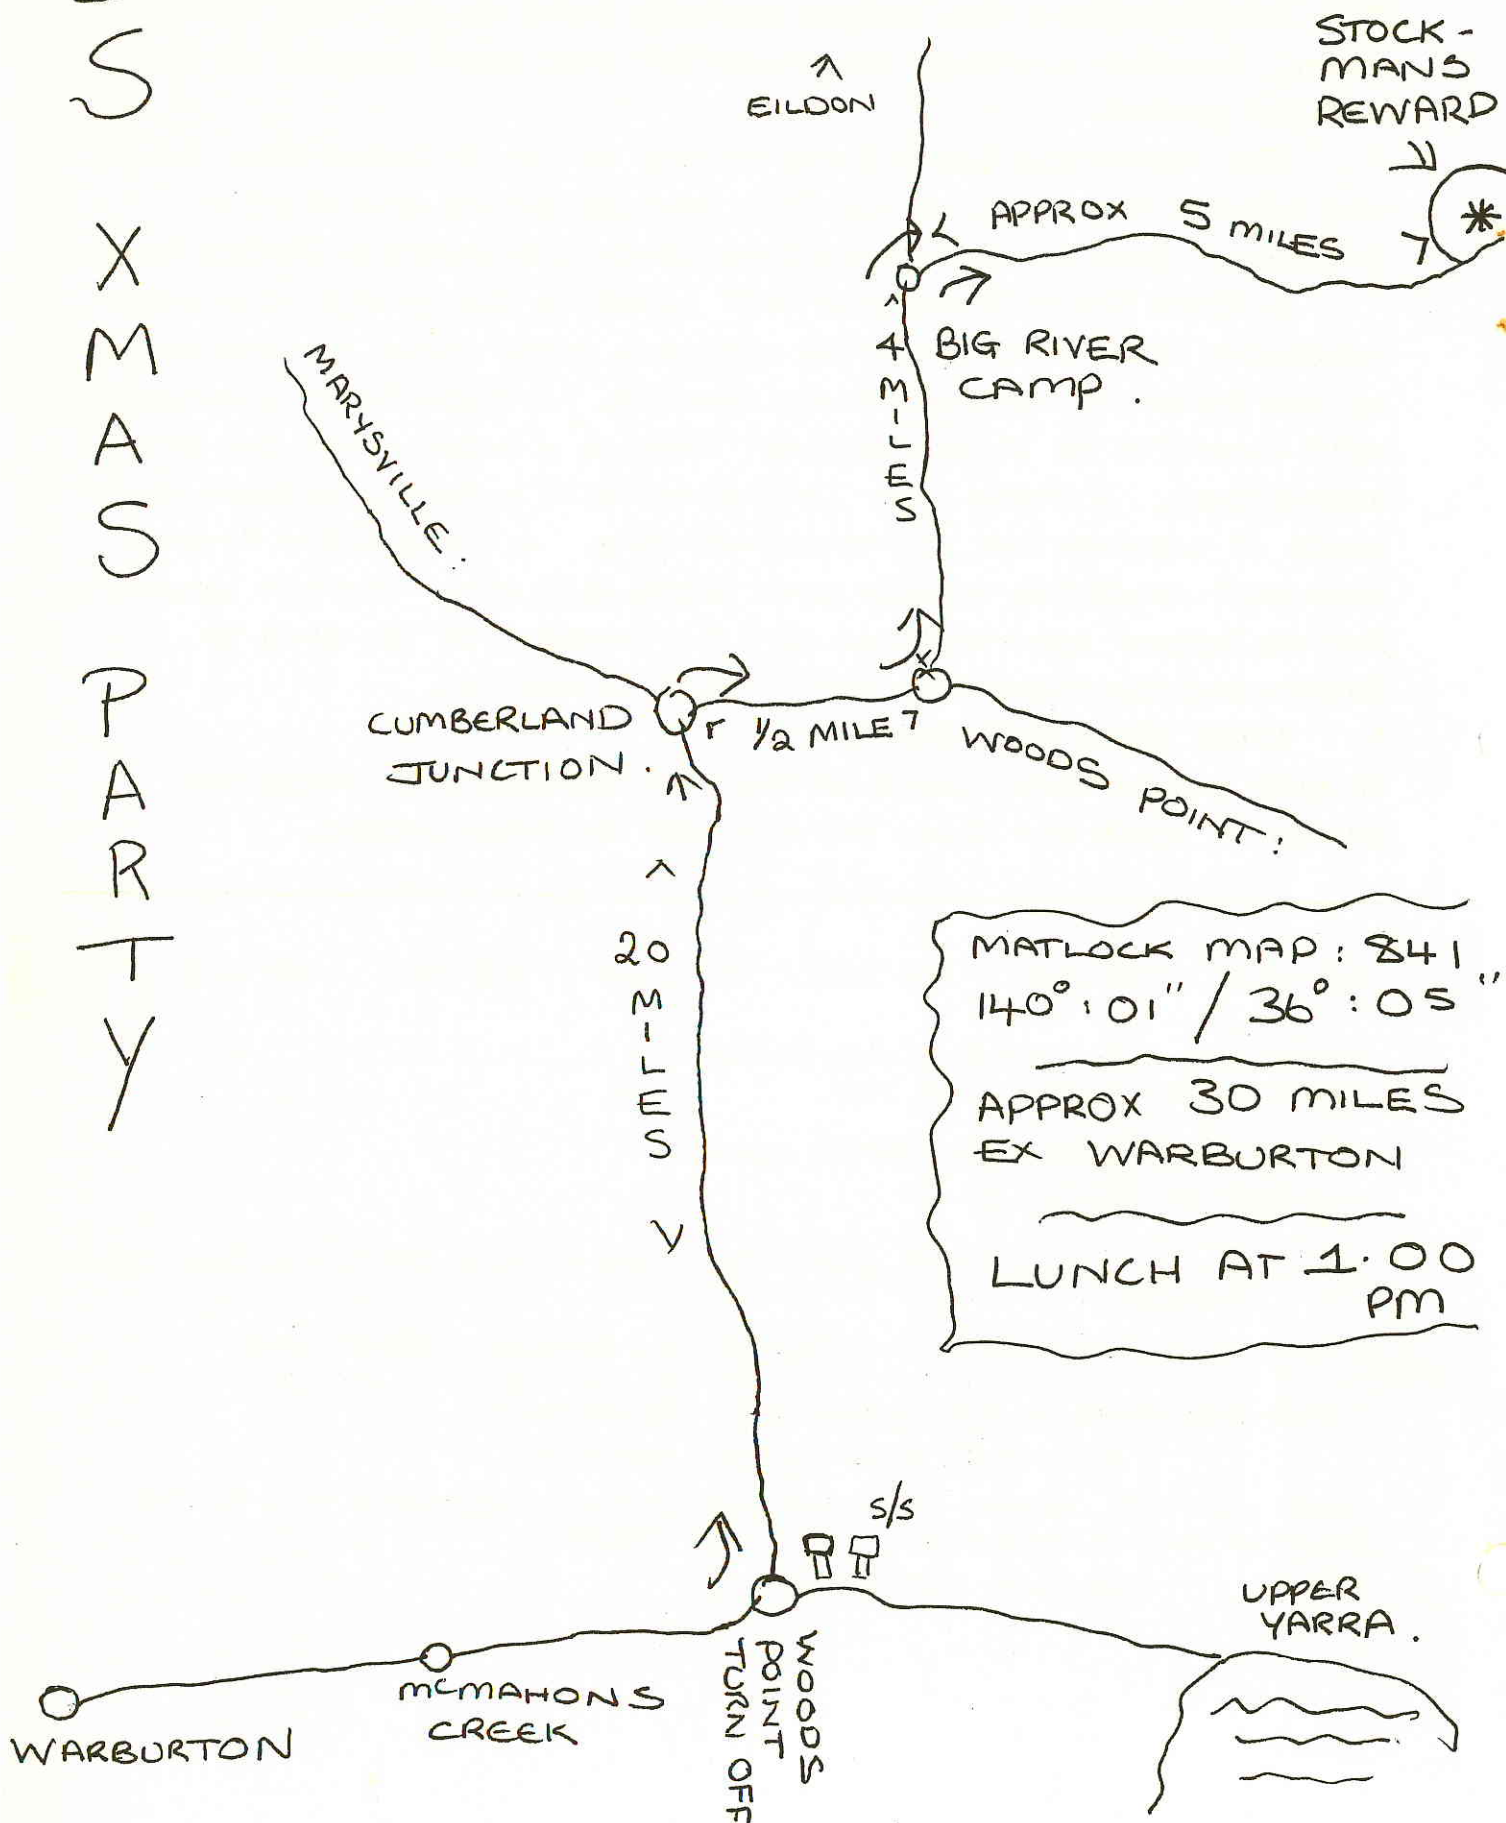 S
XMAS
PARTY
^
EILDON
STOCK-
MANS
REWARD
APPROX 5 MILES
4 MILES
BIG RIVER
CAMP.
MARYSVILLE.
CUMBERLAND
JUNCTION.
1/2 MILE
WOODS POINT.
20 MILES
MATLOCK MAP: 841
140°:01" / 36°:05"
APPROX 30 MILES
EX WARBURTON
LUNCH AT 1.00
PM
S/S
UPPER
YARRA.
WOODS
POINT
TURN OFF
McMAHONS
CREEK
WARBURTON